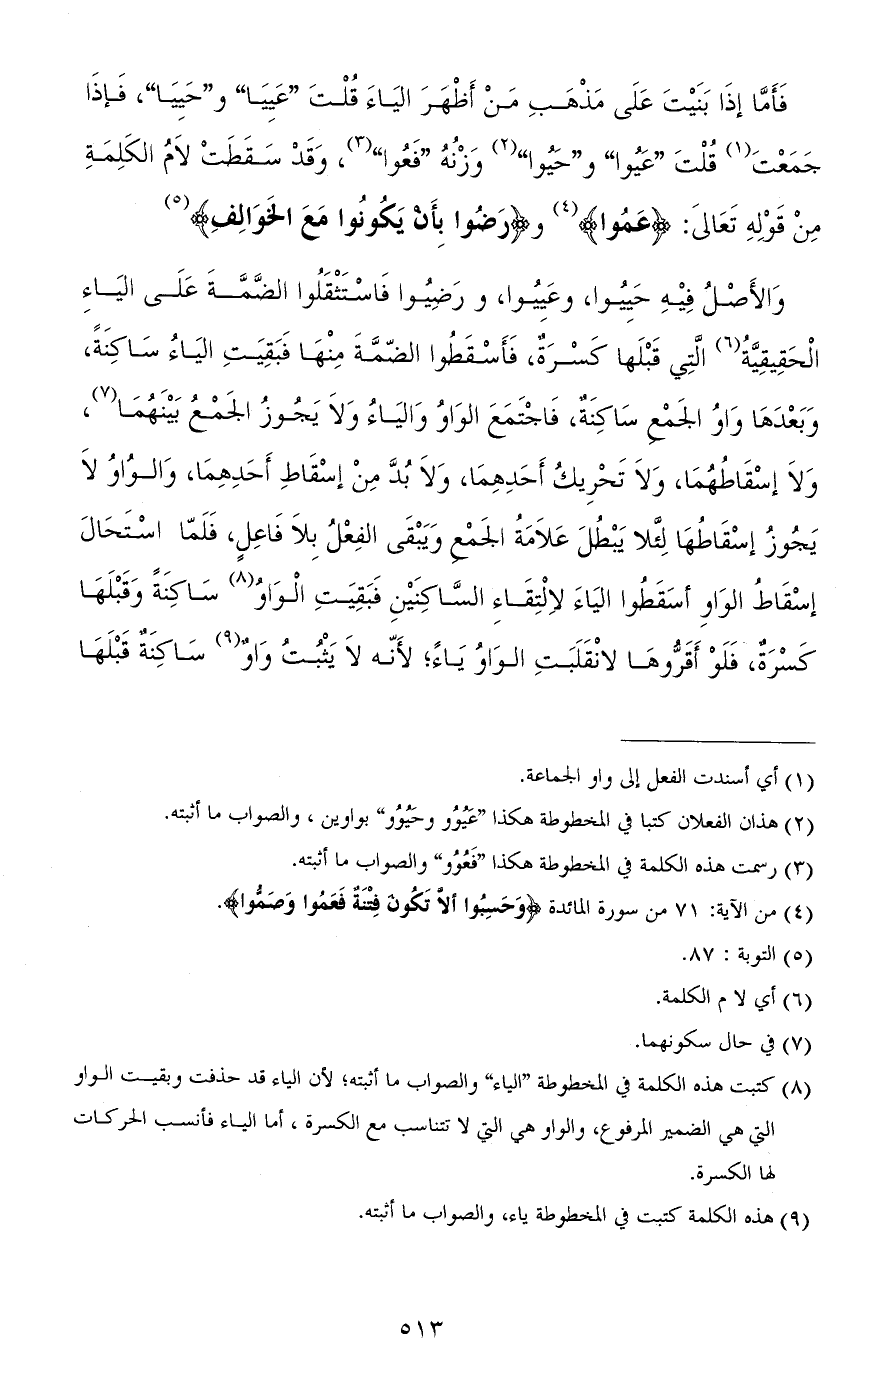 فَأَمَّا إِذَا بَنَيْتَ عَلَى مَذْهَبِ مَنْ أَظْهَرَ اليَاءَ قُلْتَ ”عَيِيَا“ و”حَيِيَا“، فَإِذَا
جَمَعْتَ(١) قُلْتَ ”عَيُوا“ و”حَيُوا“(٢) وَزْنُهُ ”فَعُوا“(٣)، وَقَدْ سَقَطَتْ لاَمُ الكَلِمَةِ
مِنْ قَوْلِهِ تَعَالَى: ﴿عَمُوا﴾(٤) و﴿رَضُوا بِأَنْ يَكُونُوا مَعَ الخَوَالِفِ﴾(٥)
وَالأَصْلُ فِيْهِ حَيِيُوا، وعَيِيُوا، و رَضِيُوا فَاسْتَثْقَلُوا الضَّمَّةَ عَلَى اليَاءِ
الْحَقِيقِيَّةُ(٦) الَّتِي قَبْلَها كَسْرَةٌ، فَأَسْقَطُوا الضّمَّةَ مِنْهَا فَبَقِيَتِ اليَاءُ سَاكِنَةً،
وَبَعْدَهَا وَاوُ الجَمْعِ سَاكِنَةٌ، فَاجْتَمَعَ الوَاوُ وَاليَاءُ وَلاَ يَجُوزُ الجَمْعُ بَيْنَهُمَا(٧)،
وَلاَ إِسْقَاطُهُمَا، وَلاَ تَحْرِيكُ أَحَدِهِمَا، وَلاَ بُدَّ مِنْ إِسْقَاطِ أَحَدِهِمَا، وَالوُاوُ لاَ
يَجُوزُ إِسْقَاطُهَا لِئَلا يَبْطُلَ عَلاَمَةُ الجَمْعِ وَيَبْقَى الفِعْلُ بِلاَ فَاعِلٍ، فَلَمّا اسْتَحَالَ
إِسْقَاطُ الوَاوِ أسقَطُوا اليَاءَ لاِلْتِقَاءِ السَّاكِنَيْنِ فَبَقِيَتِ الْوَاوُ(٨) سَاكِنَةً وَقَبْلَهَا
كَسْرَةٌ، فَلَوْ أَقَرُّوهَا لانْقَلَبَتِ الوَاوُ يَاءً؛ لأَنّه لاَ يَثْبُتُ وَاوٌ(٩) سَاكِنَةٌ قَبْلَهَا
(١) أي أسندت الفعل إلى واو الجماعة.
(٢) هذان الفعلان كتبا في المخطوطة هكذا ”عَيُوُو وحَيُوُو“ بواوين ، والصواب ما أثبته.
(٣) رسمت هذه الكلمة في المخطوطة هكذا ”فَعُوُو“ والصواب ما أثبته.
(٤) من الآية: ٧١ من سورة المائدة ﴿وَحَسِبُوا ألاَّ تَكُونَ فِتْنَةٌ فَعَمُوا وَصَمُّوا﴾.
(٥) التوبة : ٨٧.
(٦) أي لا م الكلمة.
(٧) في حال سكونهما.
(٨) كتبت هذه الكلمة في المخطوطة ”الياء“ والصواب ما أثبته؛ لأن الياء قد حذفت وبقيت الواو
التي هي الضمير المرفوع، والواو هي التي لا تتناسب مع الكسرة ، أما الياء فأنسب الحركات
لها الكسرة.
(٩) هذه الكلمة كتبت في المخطوطة ياء، والصواب ما أثبته.
٥١٣